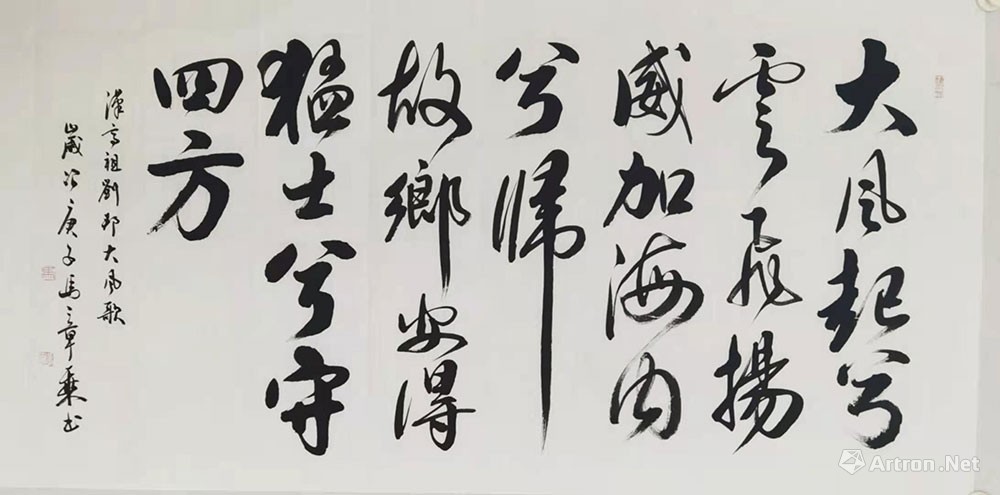 大風起兮
雲飛揚
威加海內
兮歸
故鄉安得
猛士兮守
四方
漢高祖劉邦大風歌
歲次庚子馬章乘书
Artron.Net